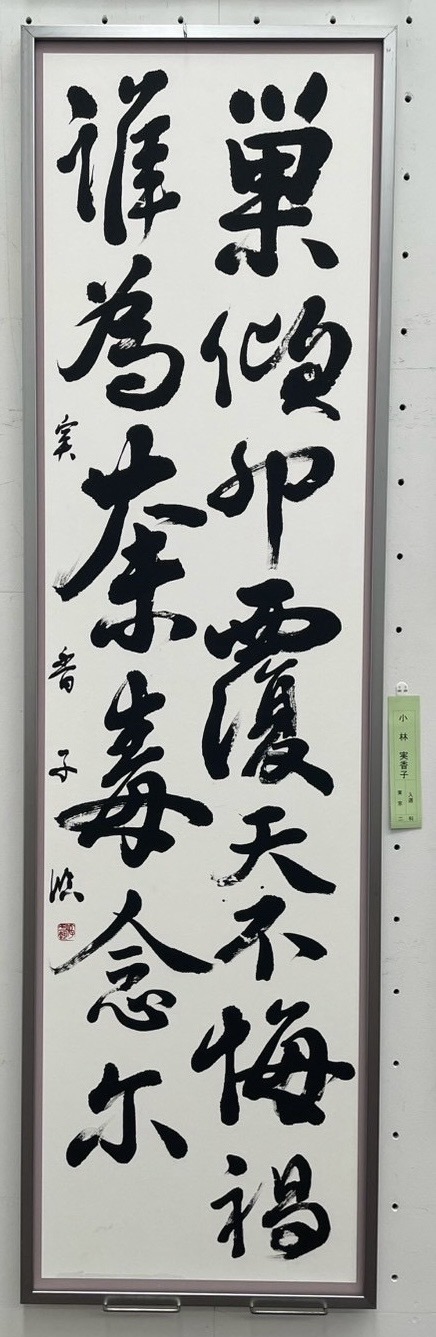 巣傾卵覆天不悔禍
誰為荼毒念尓
実香子臨
小林実香子